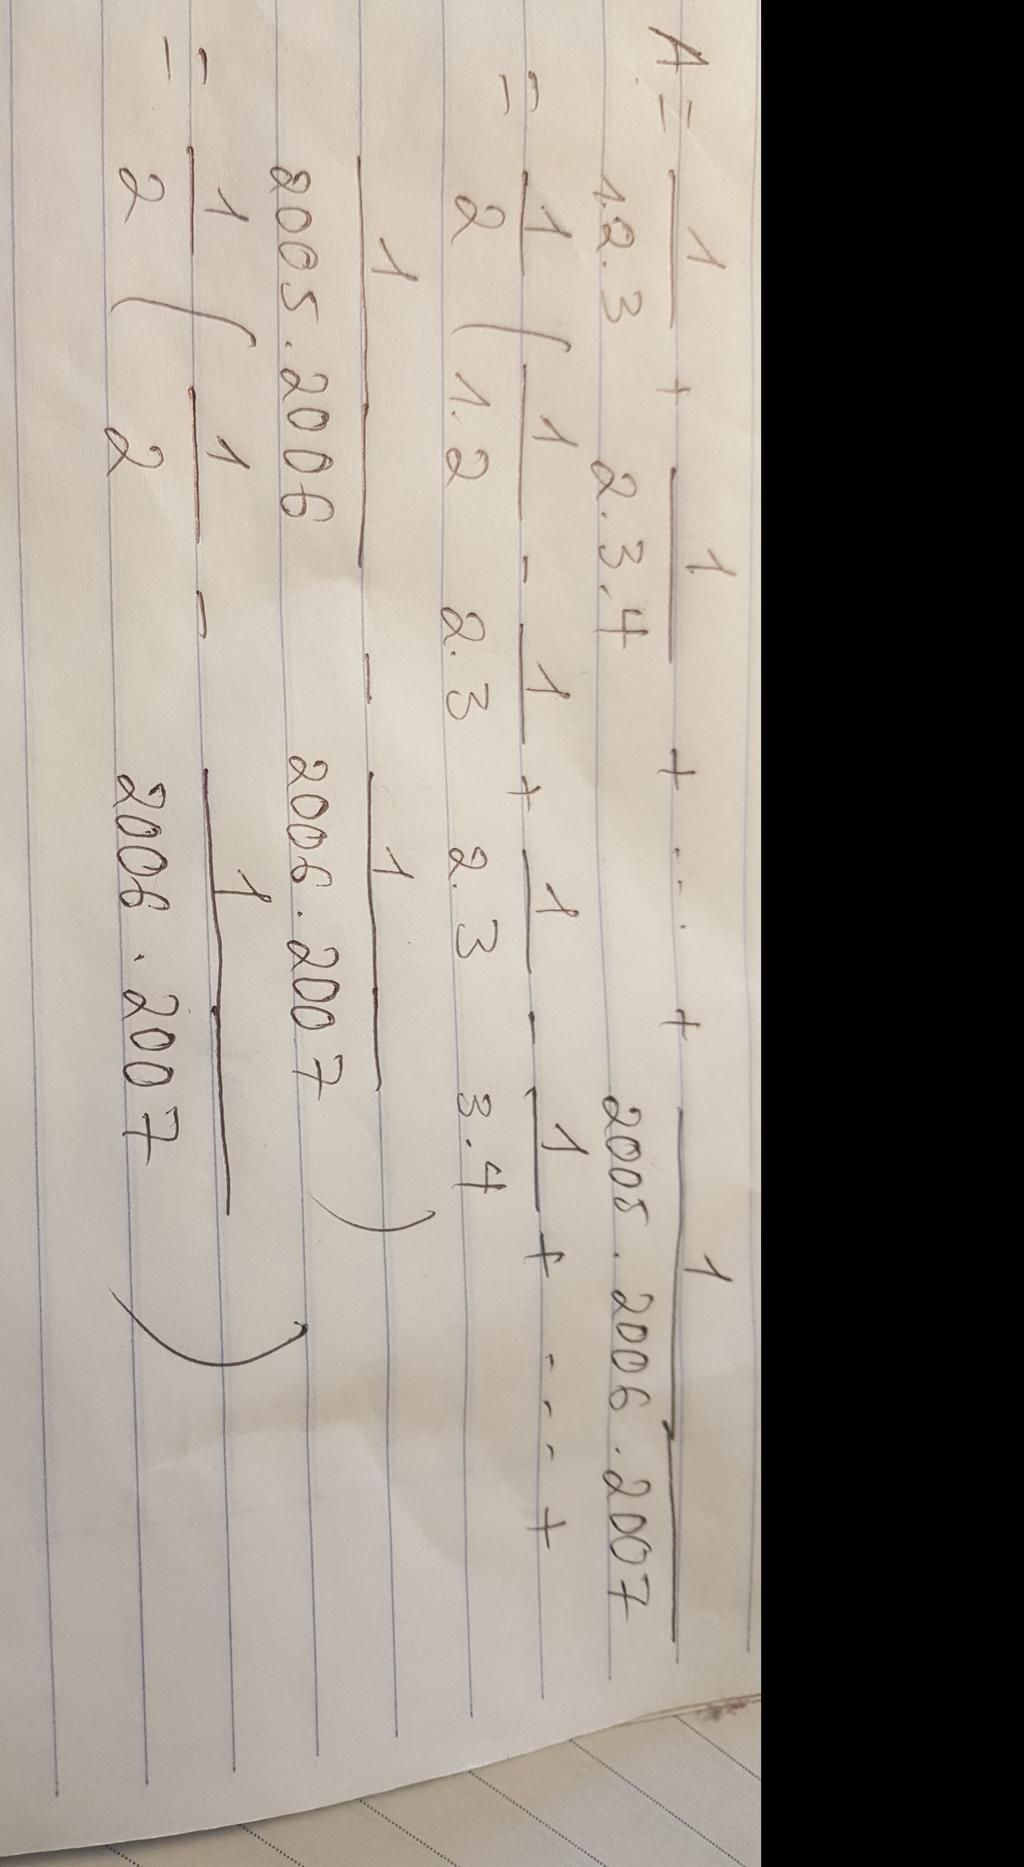 A = 1/1.2.3 + 1/2.3.4 + .... + 1/2005.2006.2007
= 1/2 ( 1/1.2 - 1/2.3 + 1/2.3 - 1/3.4 + .... +
1/2005.2006 - 1/2006.2007 )
= 1/2 ( 1/2 - 1/2006.2007 )